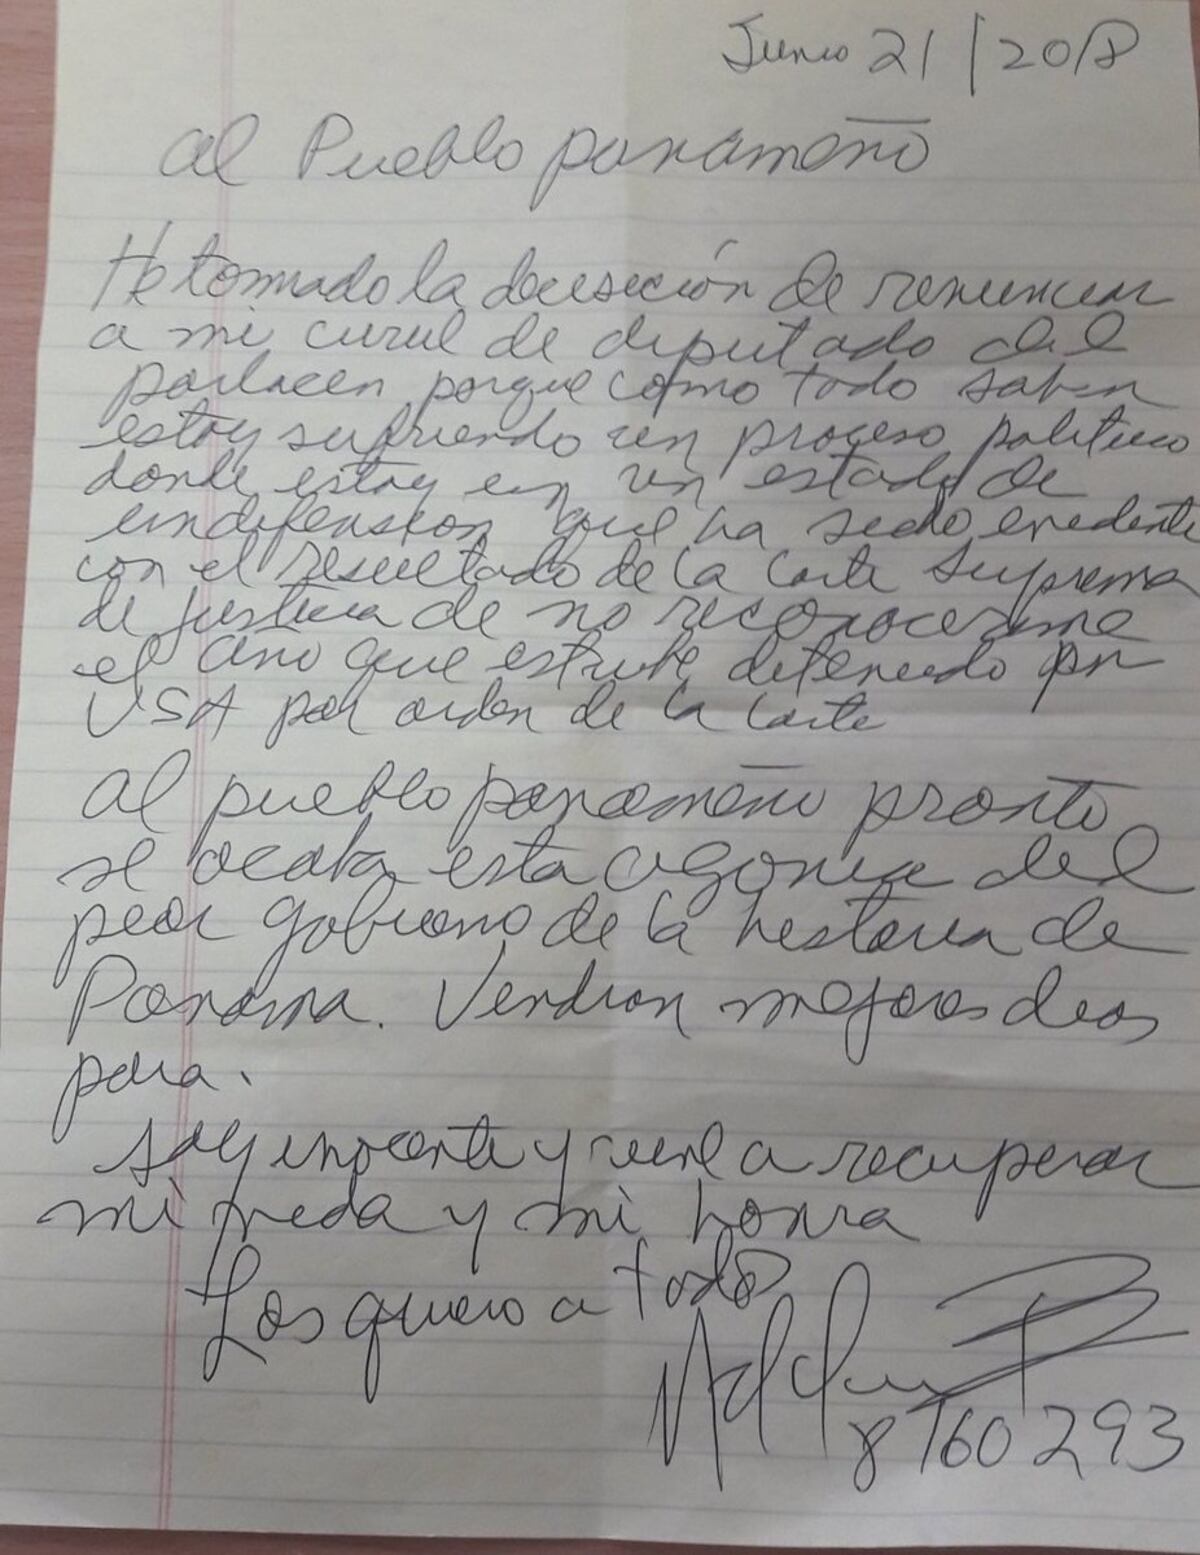 Junio 21/2018
al Pueblo panameño
He tomado la decisición de renunciar
a mi curul de diputado del
parlacen porque como todo saben
estoy sufriendo un proceso politico
donde estoy en un estado de
indifension que ha sido evidente
con el resultado de la Corte Suprema
de justicia de no reconocerme
el año que estube detenido en
USA por orden de la Corte
al pueblo panameño pronto
se acaba esta agonia del
peor gobierno de la historia de
Panama. Vendran mejores dias
para.
Soy inocente y a recuperar
mi vida y mi honra
Los quiero a todos
8 160 293